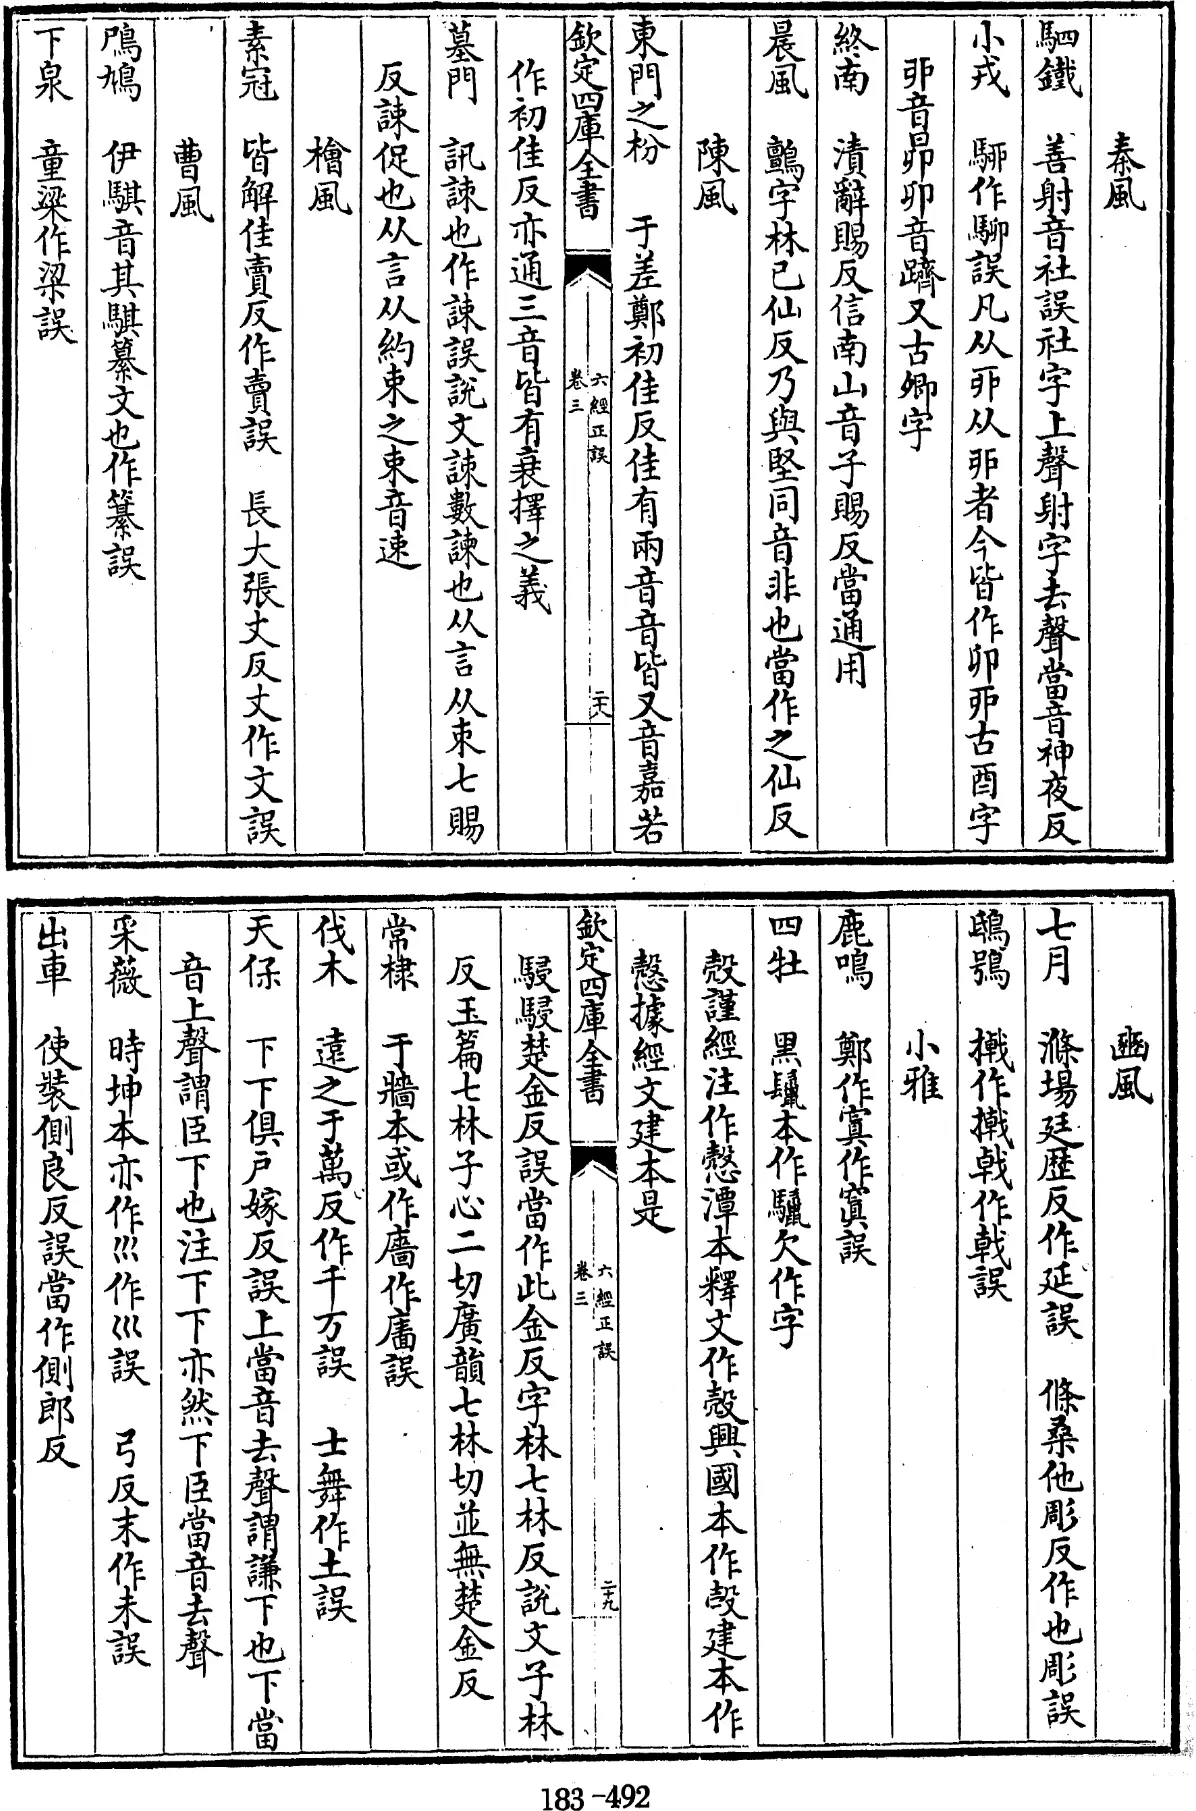 秦風
駟鐵　善射音社誤社字上聲射字去聲當音神夜反
小戎　駵作騮誤凡从丣从戼者今皆作卯丣古酉字
戼音昴卯卯音躋又古卿字
終南　漬辭賜反信南山音子賜反當通用
晨風　鸇字林已仙反乃與堅同音非也當作之仙反
陳風
東門之枌　于差鄭初佳反佳有兩音音皆又音嘉若
欽定四庫全書
六經正誤
卷三
二十八
作初佳反亦通三音皆有衰擇之義
墓門　訊諫也作諌誤說文諫數諫也从言从朿七賜
反諫促也从言从約束之束音速
檜風
素冠　皆解佳賣反作賣誤　長大張丈反丈作文誤
曹風
鳲鳩　伊騏音其騏綦文也作纂誤
下泉　童粱作梁誤
豳風
七月　滌場廷歷反作延誤　條桑他彫反作也彫誤
鴟鴞　撠作㨖戟作戟誤
小雅
鹿鳴　鄭作寘作寘誤
四牡　黑鬛本作騻欠作字
殻謹經注作慤潭本釋文作殻興國本作㱿建本作
慤據經文建本是
欽定四庫全書
六經正誤
卷三
二十九
駸駸楚金反誤當作此金反字林七林反說文子林
反玉篇七林子心二切廣韻七林切並無楚金反
常棣　于牆本或作廧作廧誤
伐木　遠之于萬反作千万誤　士舞作土誤
天保　下下俱戶嫁反誤上當音去聲謂謙下也下當
音上聲謂臣下也注下下亦然下臣當音去聲
采薇　時坤本亦作巛作巛誤　弓反末作未誤
出車　使裝側良反誤當作側郎反
183-492